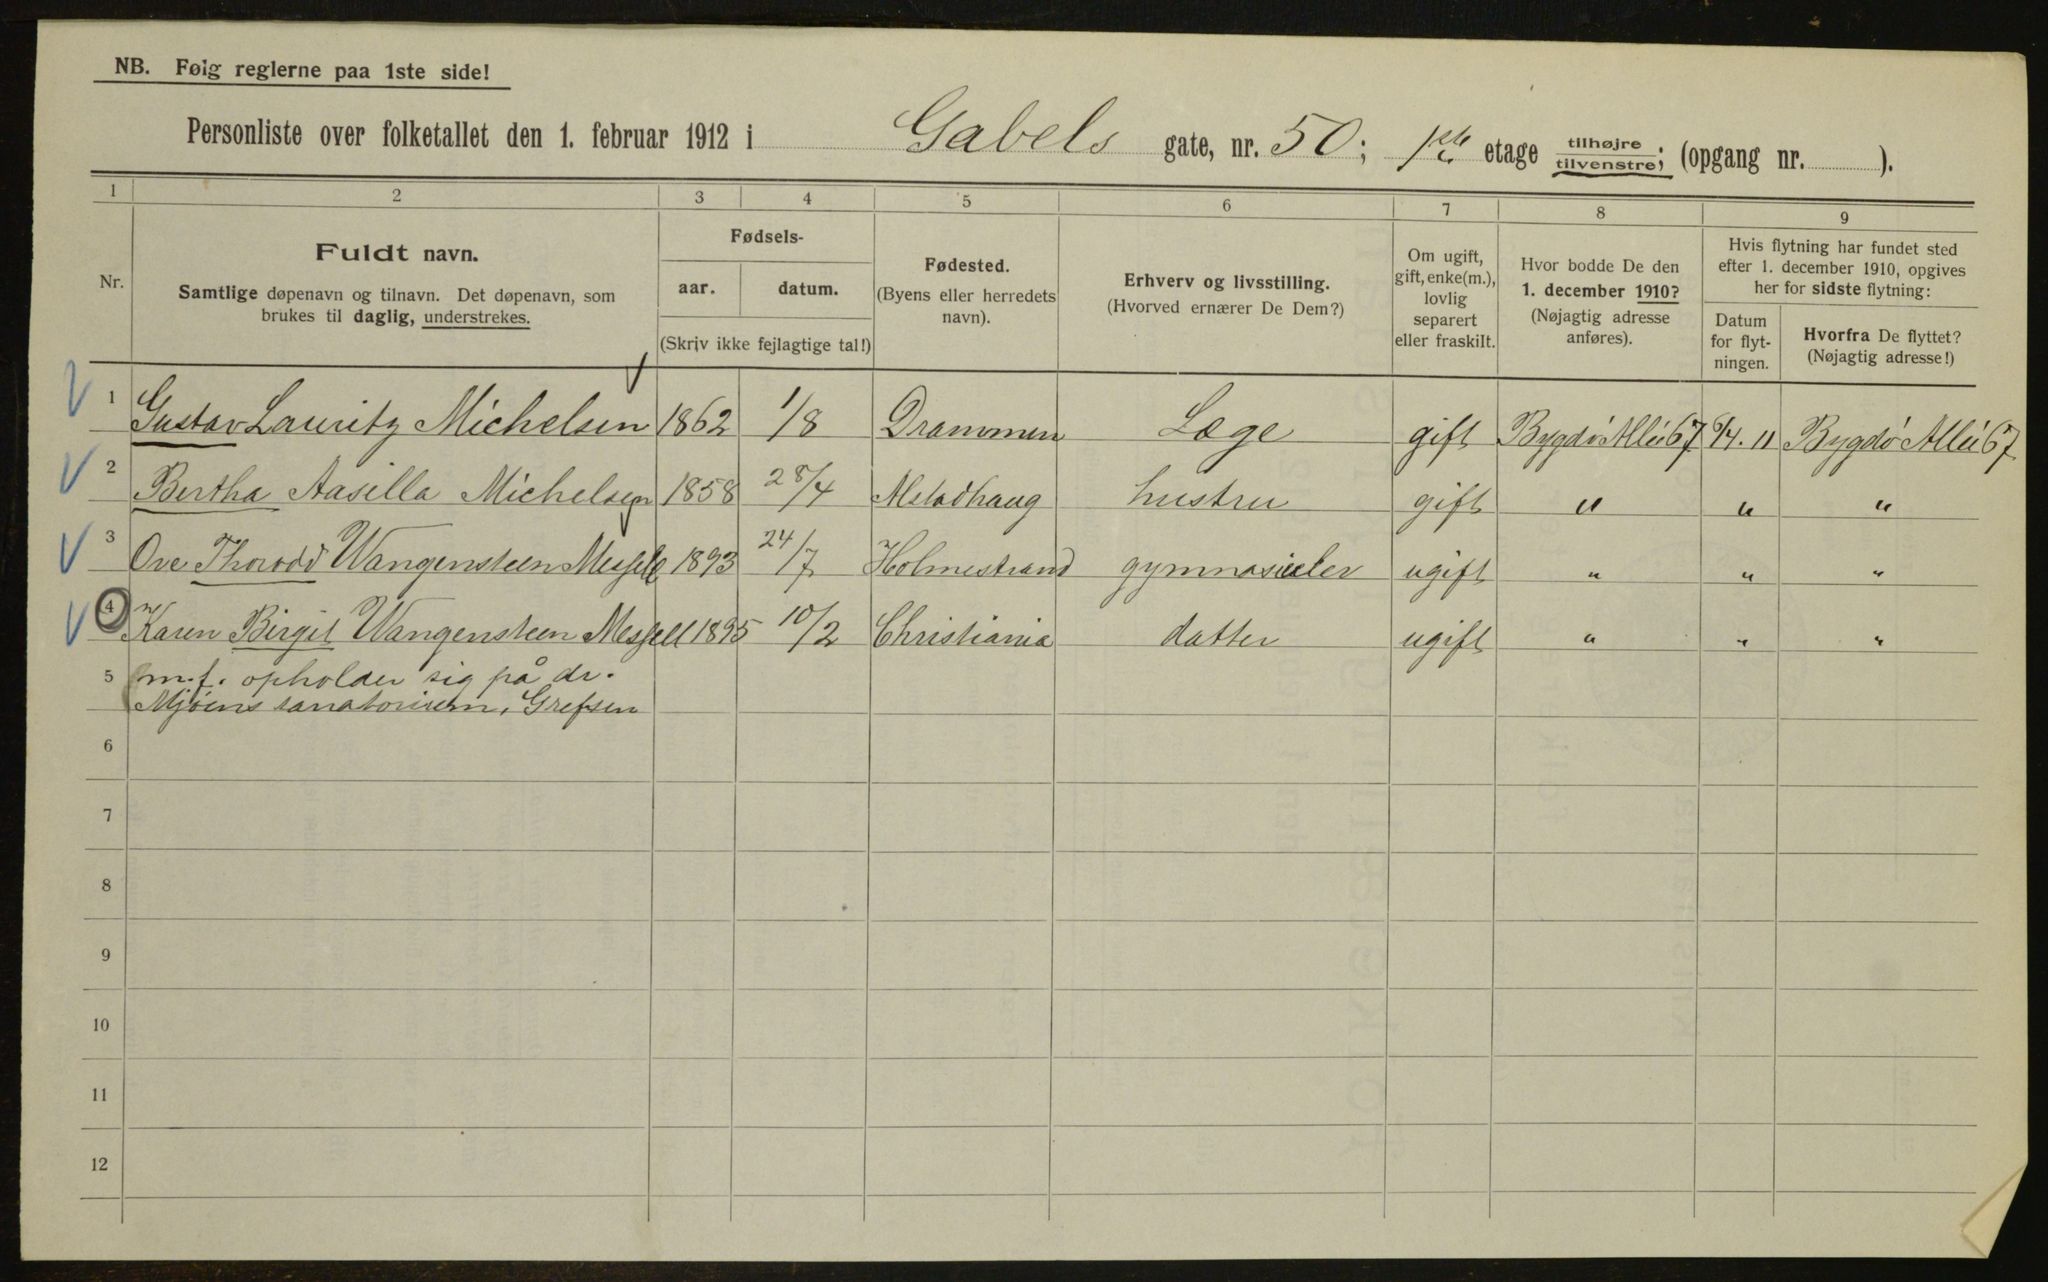 NB. Følg reglerne paa 1ste side!
Personliste over folketallet den 1. februar 1912 i Gabels gate, nr. 50; 1ste etage tilhøjre tilvenstre; (opgang nr. ).
1 2 3 4 5 6 7 8 9
Nr.
Fuldt navn.
Samtlige døpenavn og tilnavn. Det døpenavn, som
brukes til daglig, understrekes.
Fødsels-
aar. datum.
(Skriv ikke fejlagtige tal!)
Fødested.
(Byens eller herredets
navn).
Erhverv og livsstilling.
(Hvorved ernærer De Dem?)
Om ugift,
gift, enke(m.),
lovlig
separert
eller fraskilt.
Hvor bodde De den
1. december 1910?
(Nøjagtig adresse
anføres).
Hvis flytning har fundet sted
efter 1. december 1910, opgives
her for sidste flytning:
Datum
for flyt-
ningen.
Hvorfra De flyttet?
(Nøjagtig adresse!)
1 Gustav Lauritz Michelsen 1862 1/8 Drammen Læge gift Bygdö Allé 67 /4. 11 Bygdö Allé 67
2 Bertha Aasilla Michelsen 1858 28/4 Alstadhaug hustru gift " " "
3 Ove Thorodd Wangensteen Messell 1893 24/7 Holmestrand gymnasieler ugift " " "
4 Karen Birgit Wangensteen Messell 1895 10/2 Christiania datter ugift " " "
5 m.f. opholder sig på dr.
Mjöens sanatorium, Grefsen
6
7
8
9
10
11
12